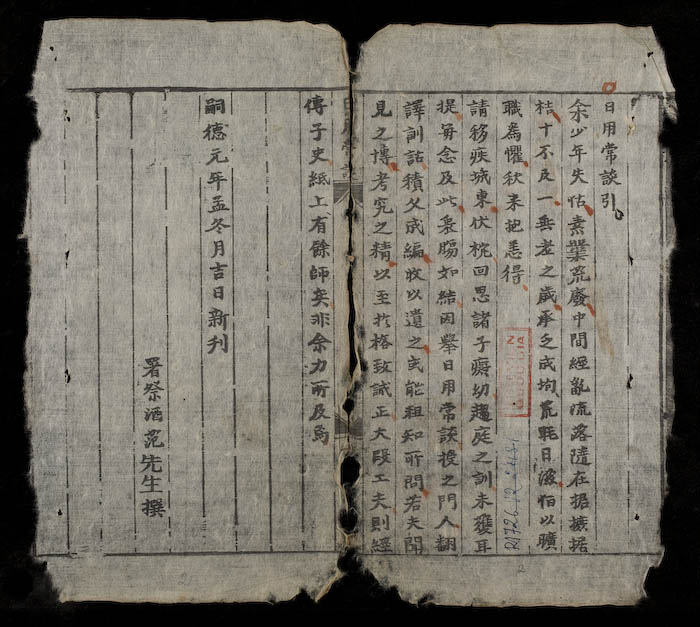 日用常談引
余少年失怙素業荒廢中間經亂流落隨在据摭据
桔十不及一垂老之歲承乏成均荒耗日滋怕以曠
職為懼秋来抱恙得
請移疾城東伏枕回思諸子癡幼趨庭之訓未獲耳
提毎念及此梟腸如結因舉日用常談授之門人翻
譯訓詁積久成編收以遺之或能粗知所問若夫聞
見之博考究之精以至於格致誠正大段工夫則經
傳子史紙上有餘師矣非余力所及焉
嗣德元年孟冬月吉日新刊
署祭酒范先生撰